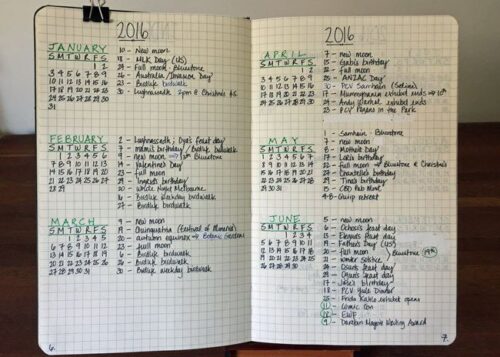 2016
JANUARY
S M T W R F S
1 2
3 4 5 6 7 8 9
10 11 12 13 14 15 16
17 18 19 20 21 22 23
24 25 26 27 28 29 30
31
10 - New moon
18 - MLK Day (US)
24 - Full moon - Bluestone
26 - Australia/Invasion Day
23 - Birdlife birdwalk
30 - Lughnasadh 2pm @
FEBRUARY
S M T W R F S
1 2 3 4 5 6
7 8 9 10 11 12 13
14 15 16 17 18 19 20
21 22 23 24 25 26 27
28 29
2 - Lughnassadh; feast day
7 - mami's birthday / Birdlife birdwalk
9 - new moon → Bluestone
14 - Valentine's Day
23 - full moon
birthday
20 - White Night Melbourne
16 - Birdlife Weekday birdwalk
27 - Birdlife birdwalk
MARCH
S M T W R F S
1 2 3 4 5
6 7 8 9 10 11 12
13 14 15 16 17 18 19
20 21 22 23 24 25 26
27 28 29 30 31
9 - new moon
19 - Quinquatria (Festival of Minerva)
20 - autumn equinox → Botanic Gardens
23 - full moon
6 - Birdlife birdwalk
26 - Birdlife birdwalk
30 - Birdlife weekday birdwalk
6.
2016
APRIL
S M T W R F S
1 2
3 4 5 6 7 8 9
10 11 12 13 14 15 16
17 18 19 20 21 22 23
24 25 26 27 28 29 30
7 - new moon
15 - Gabi's birthday
22 - full moon
25 - ANZAC Day
30 - PCV Samhain
17 - exhibit ends
24 - Andy Warhol exhibit ends
23 - PCV Pagans in the Park
MAY
S M T W R F S
1 2 3 4 5 6 7
8 9 10 11 12 13 14
15 16 17 18 19 20 21
22 23 24 25 26 27 28
29 30 31
1 - Samhain - Bluestone
7 - new moon
8 - Mother's Day
17 - birthday
22 - full moon - Bluestone @
27 - birthday
29 - Tina's birthday
15 - CBD Pub Moot
6-8 - retreat
JUNE
S M T W R F S
1 2 3 4
5 6 7 8 9 10 11
12 13 14 15 16 17 18
19 20 21 22 23 24 25
26 27 28 29 30
5 - new moon
feast day
feast day
19 - Father's Day (US)
20 - full moon
winter solstice
Bluestone
19th
feast day
feast day
birthday
18 - PCV Yule Dinner
25 - Frida Kahlo exhibit opens
11 - Comic Con
EWF
Darebin Mayor's Writing Award
7.